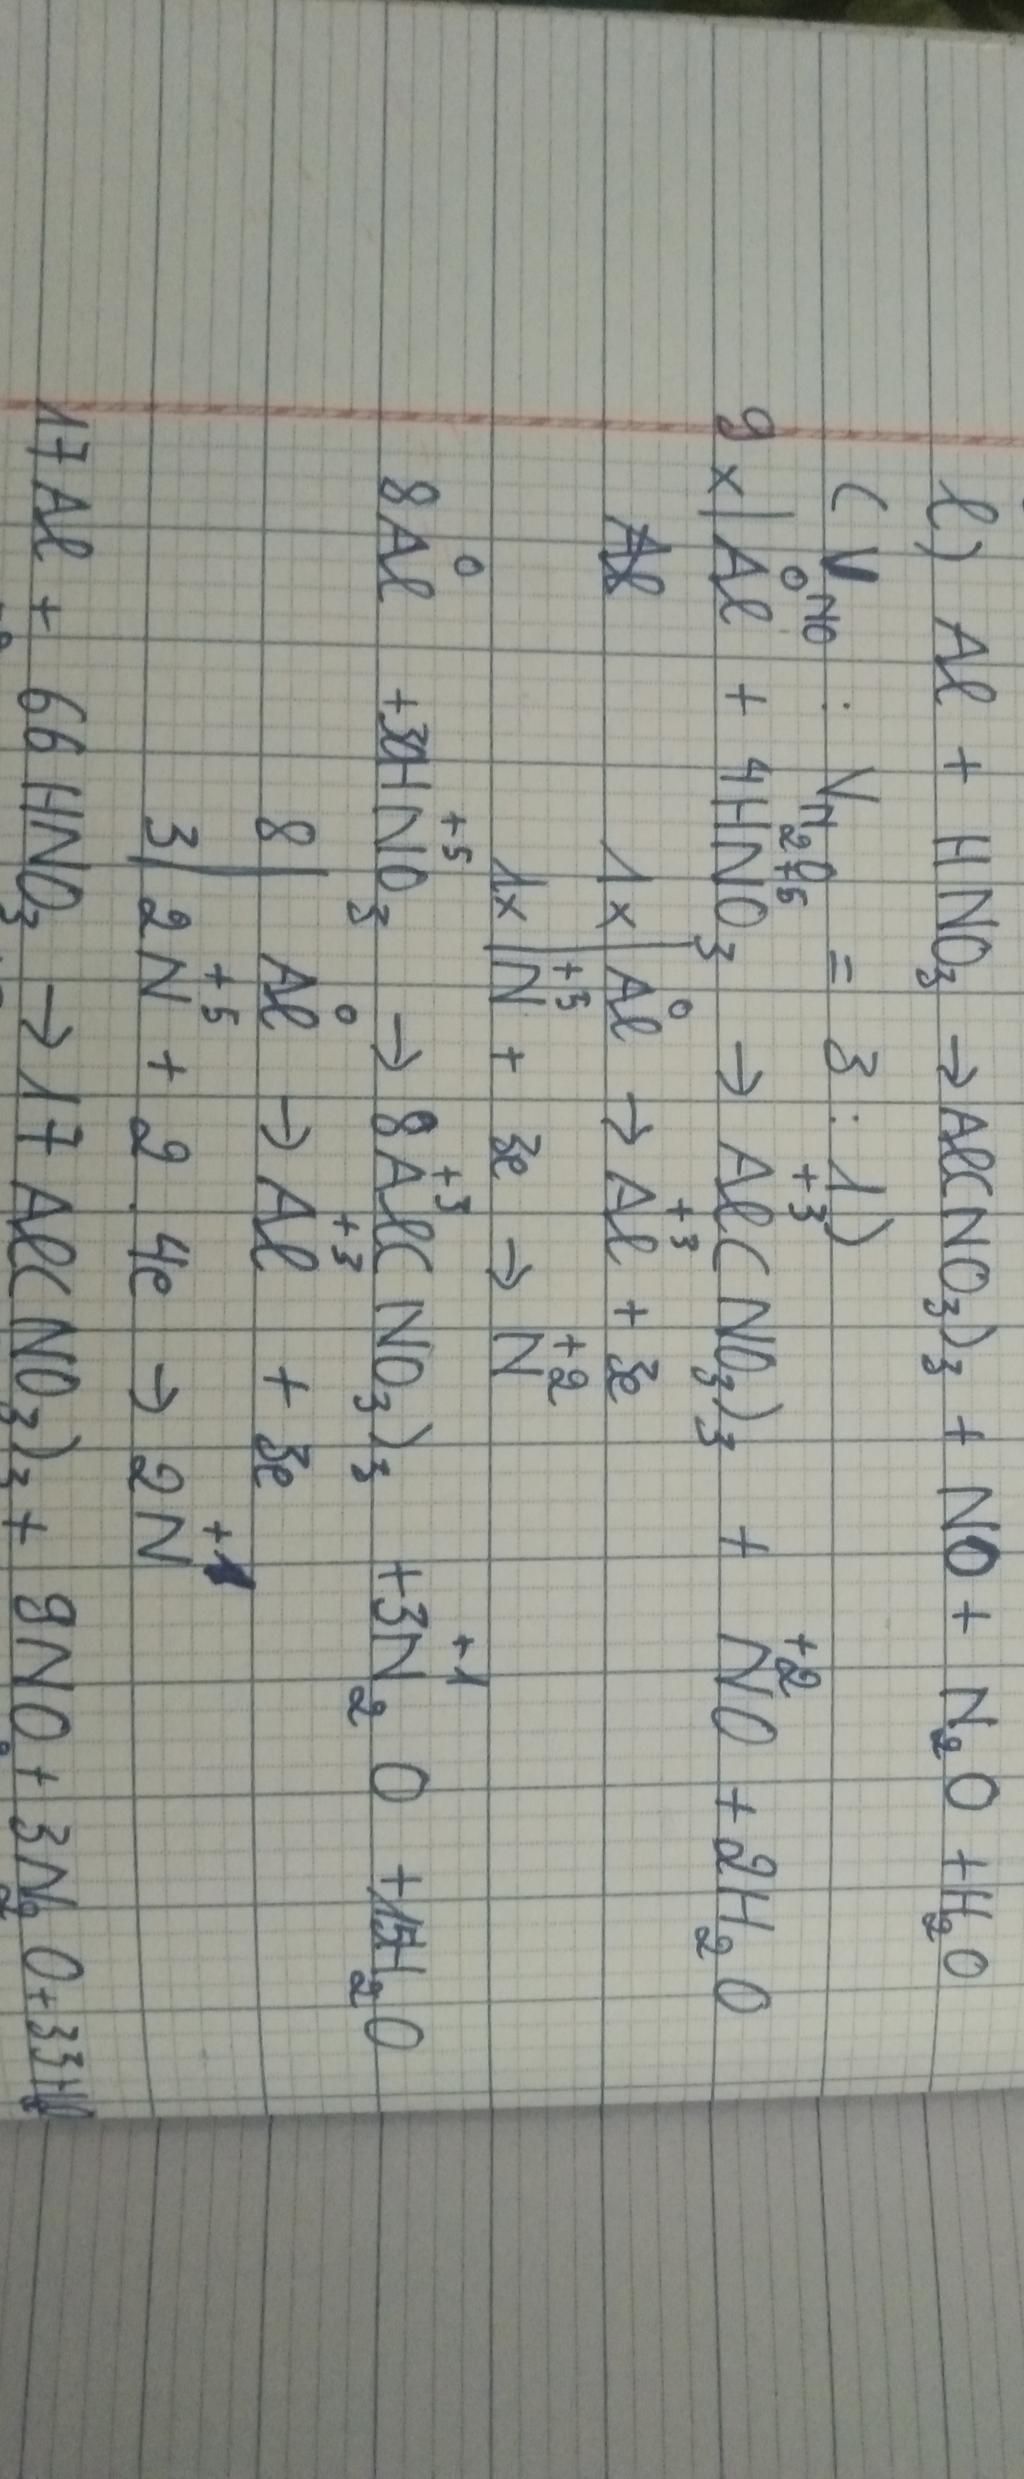 l) Al + HNO₃ → Al(NO₃)₃ + NO + N₂O + H₂O
(V_NO : V_N₂O = 3 : 1)
9x| Al⁰ + 4HN⁺⁵O₃ → Al⁺³(NO₃)₃ + N⁺²O + 2H₂O
1x| Al⁰ → Al⁺³ + 3e
1x| N⁺⁵ + 3e → N⁺²
8Al⁰ + 30HN⁺⁵O₃ → 8Al⁺³(NO₃)₃ + 3N⁺¹₂O + 15H₂O
8| Al⁰ → Al⁺³ + 3e
3| 2N⁺⁵ + 2.4e → 2N⁺¹
17Al + 66HNO₃ → 17Al(NO₃)₃ + 9NO + 3N₂O + 33H₂